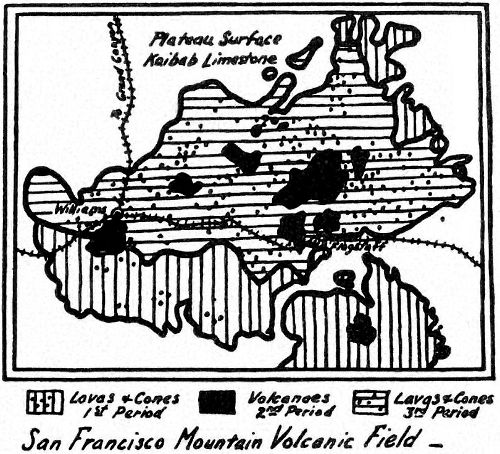 To Grand Canyon
Plateau Surface
Kaibab Limestone
Williams
Flagstaff
Lavas & Cones
1st Period
Volcanoes
2nd Period
Lavas & Cones
3rd Period
San Francisco Mountain Volcanic Field -